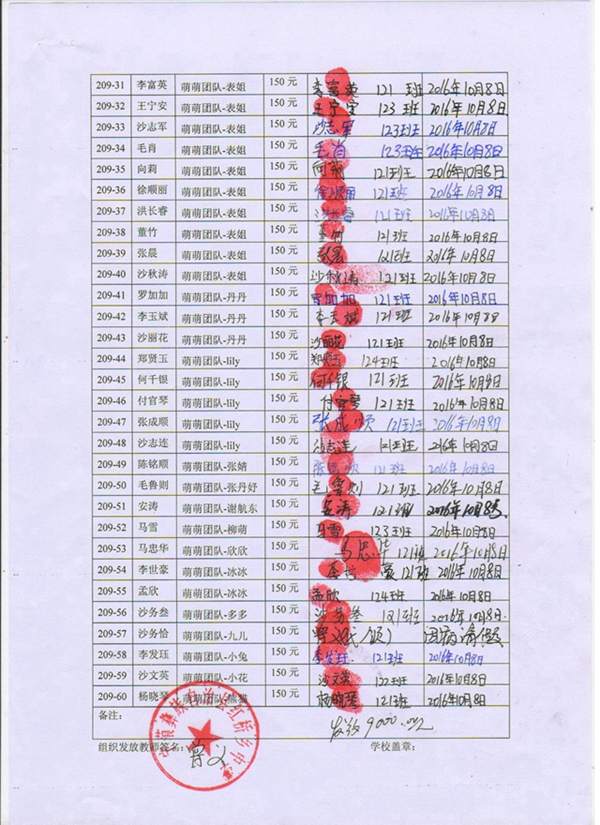 209-31 李富英 萌萌团队-表姐 150元 李富英 121班 2016年10月8日
209-32 王宁安 萌萌团队-表姐 150元 王宁安 123班 2016年10月8日
209-33 沙志军 萌萌团队-表姐 150元 沙志军 123班 2016年10月8日
209-34 毛肖 萌萌团队-表姐 150元 毛肖 123班 2016年10月8日
209-35 向莉 萌萌团队-表姐 150元 向莉 121班 2016年10月8日
209-36 徐顺丽 萌萌团队-表姐 150元 徐顺丽 121班 2016年10月8日
209-37 洪长睿 萌萌团队-表姐 150元 121班 2016年10月8日
209-38 董竹 萌萌团队-表姐 150元 董竹 121班 2016年10月8日
209-39 张晨 萌萌团队-表姐 150元 张晨 121班 2016年10月8日
209-40 沙秋涛 萌萌团队-表姐 150元 沙秋涛 121班 2016年10月8日
209-41 罗加加 萌萌团队-丹丹 150元 罗加加 121班 2016年10月8日
209-42 李玉斌 萌萌团队-丹丹 150元 李玉斌 121班 2016年10月8日
209-43 沙丽花 萌萌团队-丹丹 150元 沙丽花 121班 2016年10月8日
209-44 郑贤玉 萌萌团队-lily 150元 郑贤玉 124班 2016年10月8日
209-45 何千银 萌萌团队-lily 150元 何千银 121班 2016年10月8日
209-46 付官琴 萌萌团队-lily 150元 付官琴 121班 2016年10月8日
209-47 张成顺 萌萌团队-lily 150元 张成顺 121班 2016年10月8日
209-48 沙志连 萌萌团队-lily 150元 沙志连 121班 2016年10月8日
209-49 陈铭顺 萌萌团队-张婧 150元 121班 2016年10月8日
209-50 毛鲁则 萌萌团队-张丹妤 150元 毛鲁则 121班 2016年10月8日
209-51 安涛 萌萌团队-谢航东 150元 安涛 121班 2016年10月8号
209-52 马雪 萌萌团队-柳萌 150元 马雪 123班 2016年10月8日
209-53 马忠华 萌萌团队-欣欣 150元 马忠华 121班 2016年10月8日
209-54 李世豪 萌萌团队-冰冰 150元 李世豪 121班 2016年10月8日
209-55 孟欣 萌萌团队-冰冰 150元 孟欣 124班 2016年10月8日
209-56 沙务叁 萌萌团队-多多 150元 沙务叁 121班 2016年10月8日
209-57 沙务恰 萌萌团队-九儿 150元 (领) 因病请假
209-58 李发珏 萌萌团队-小兔 150元 李发珏 121班 2016年10月8日
209-59 沙文英 萌萌团队-小花 150元 沙文英 122班 2016年10月8日
209-60 杨晓琴 萌萌团队-熊猫 150元 杨晓琴 121班 2016年10月8日
备注： 发放9000.00元
组织发放教师签名： 学校盖章：